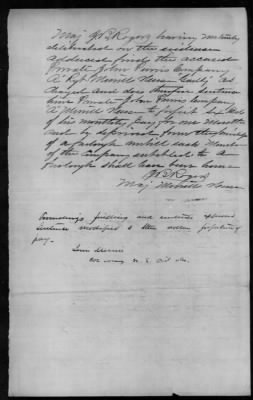 Maj G. P. Rogers having maturely
deliberated on the evidence
adduced finds the accused
Private John Purvis Company
A Regt Merrill's Horse Guilty as
charged and does therefore sentence
him Private John Purvis Company
A Merrill Horse to forfeit
of his monthly pay for one Month
and be deprived from the privilege
of a furlough untill each Member
of the Company entitled to a
furlough shall have been home
Maj Merrill's Horse
Proceedings finding and sentence approved
sentence modified to dollars forfeiture of
pay.
Lewis Merrill